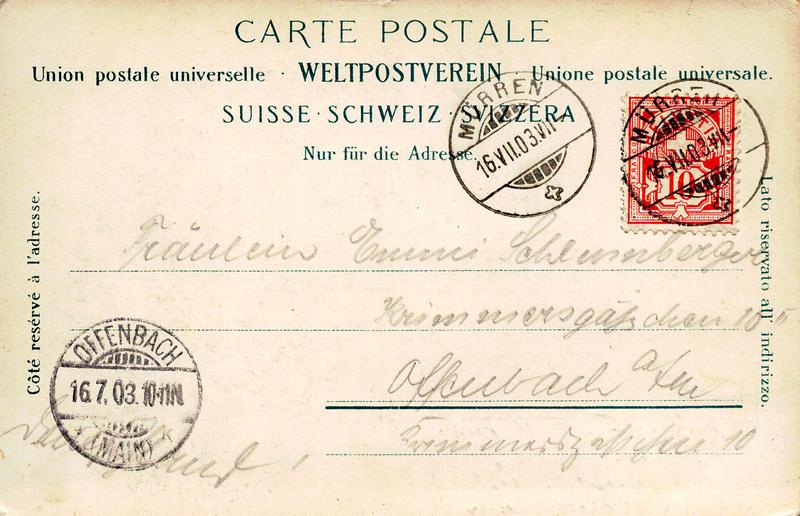 CARTE POSTALE
Union postale universelle · WELTPOSTVEREIN · Unione postale universale.
SUISSE · SCHWEIZ · SVIZZERA
Nur für die Adresse.
MÜRREN
16.VII.03.VII
MÜRREN
16.VII.03.VII
10
Côté resérvé à l'adresse.
Lato riservato all indirizzo.
Fräulein Emmi Schlumberger
Krimmersgäßchen 10 II
Offenbach a/m
OFFENBACH
16.7.03.10-11N.
(MAIN)
10